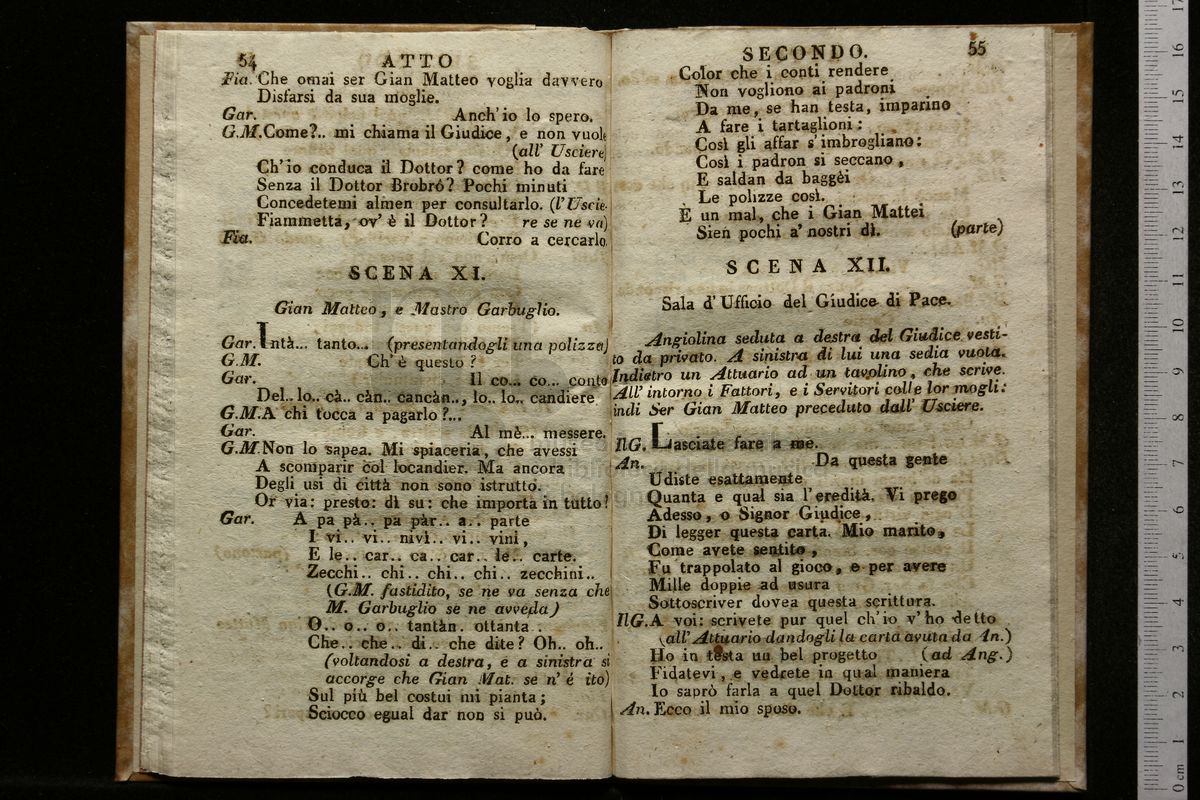 54 ATTO
Fia. Che omai ser Gian Matteo voglia davvero
Disfarsi da sua moglie.
Gar. Anch'io lo spero.
G.M. Come?.. mi chiama il Giudice, e non vuole
(all' Usciere)
Ch'io conduca il Dottor? come ho da fare
Senza il Dottor Brobrò? Pochi minuti
Concedetemi almen per consultarlo. (l'Uscie-
Fiammetta, ov' è il Dottor? re se ne va)
Fia. Corro a cercarlo.
SCENA XI.
Gian Matteo, e Mastro Garbuglio.
Gar. Intà... tanto... (presentandogli una polizza)
G.M. Ch' è questo?
Gar. Il co... co... conto
Del.. lo.. cà.. càn.. cancàn.., lo.. lo.. candiere
G.M. A chi tocca a pagarlo?...
Gar. Al mè... messere.
G.M. Non lo sapea. Mi spiaceria, che avessi
A scomparir col locandier. Ma ancora
Degli usi di città non sono istrutto.
Or via: presto: dì su: che importa in tutto?
Gar. A pa pà.. pa pàr.. a.. parte
I vi.. vi.. nivì.. vi.. vini,
E le.. car.. ca.. car.. le.. carte.
Zecchi.. chi.. chi.. chi.. zecchini..
(G.M. fastidito, se ne va senza che
M. Garbuglio se ne avveda)
O.. o.. o.. tantàn. ottanta .
Che.. che.. di.. che dite? Oh.. oh..
(voltandosi a destra, e a sinistra si
accorge che Gian Mat. se n' é ito)
Sul più bel costui mi pianta;
Sciocco egual dar non si può.
SECONDO. 55
Color che i conti rendere
Non vogliono ai padroni
Da me, se han testa, imparino
A fare i tartaglioni:
Così gli affar s'imbrogliano:
Così i padron si seccano,
E saldan da baggèi
Le polizze così.
È un mal, che i Gian Mattei
Sien pochi a' nostri dì. (parte)
SCENA XII.
Sala d'Ufficio del Giudice di Pace.
Angiolina seduta a destra del Giudice vesti-
to da privato. A sinistra di lui una sedia vuota.
Indietro un Attuario ad un tavolino, che scrive.
All' intorno i Fattori, e i Servitori colle lor mogli:
indi Ser Gian Matteo preceduto dall' Usciere.
IlG. Lasciate fare a me.
An. Da questa gente
Udiste esattamente
Quanta e qual sia l'eredità. Vi prego
Adesso, o Signor Giudice,
Di legger questa carta. Mio marito,
Come avete sentito,
Fu trappolato al gioco, e per avere
Mille doppie ad usura
Sottoscriver dovea questa scrittura.
IlG. A voi: scrivete pur quel ch'io v'ho detto
(all' Attuario dandogli la carta avuta da An.)
Ho in testa un bel progetto (ad Ang.)
Fidatevi, e vedrete in qual maniera
Io saprò farla a quel Dottor ribaldo.
An. Ecco il mio sposo.